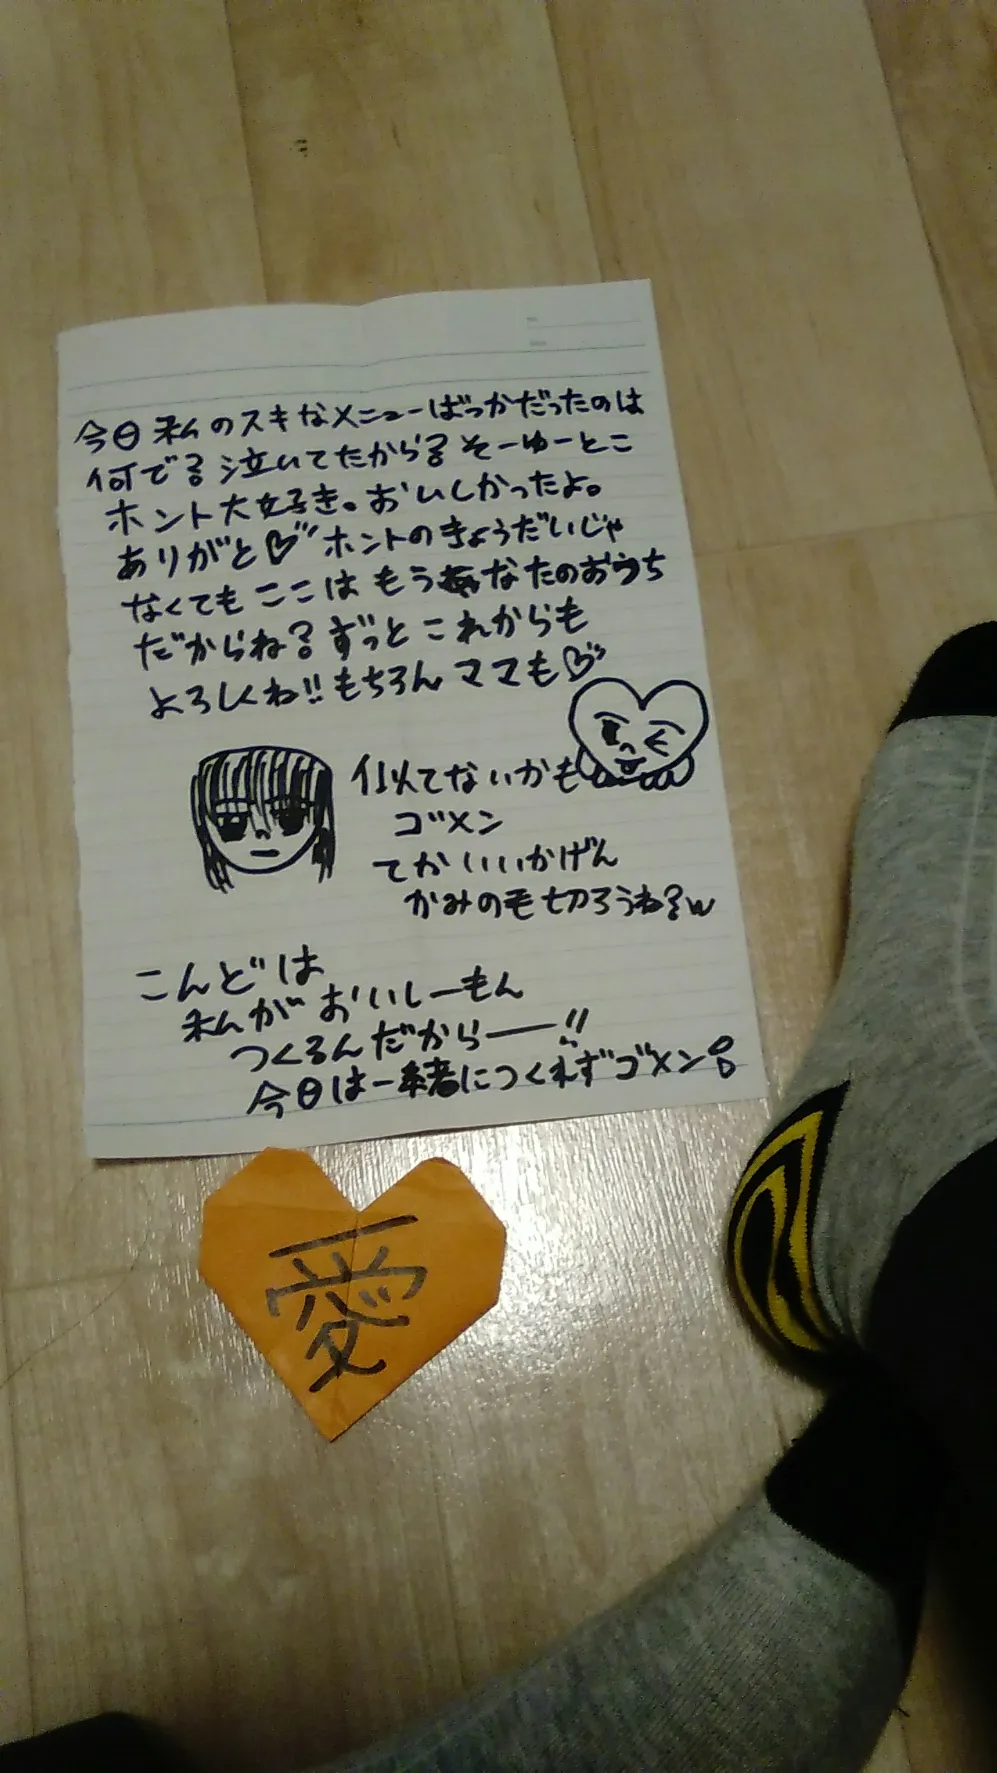 今日私のスキなメニューばっかだったのは
何で?泣いてたから?そーゆーとこ
ホント大好き。おいしかったよ。
ありがと♡ホントのきょうだいじゃ
なくてもここはもうあなたのおうち
だからね?ずっとこれからも
よろしくね!!もちろんママも♡
似てないかも
ゴメン
てかいいかげん
かみの毛切ろうね?w
こんどは
私がおいしーもん
つくるんだからー!!
今日は一緒につくれずゴメン
愛